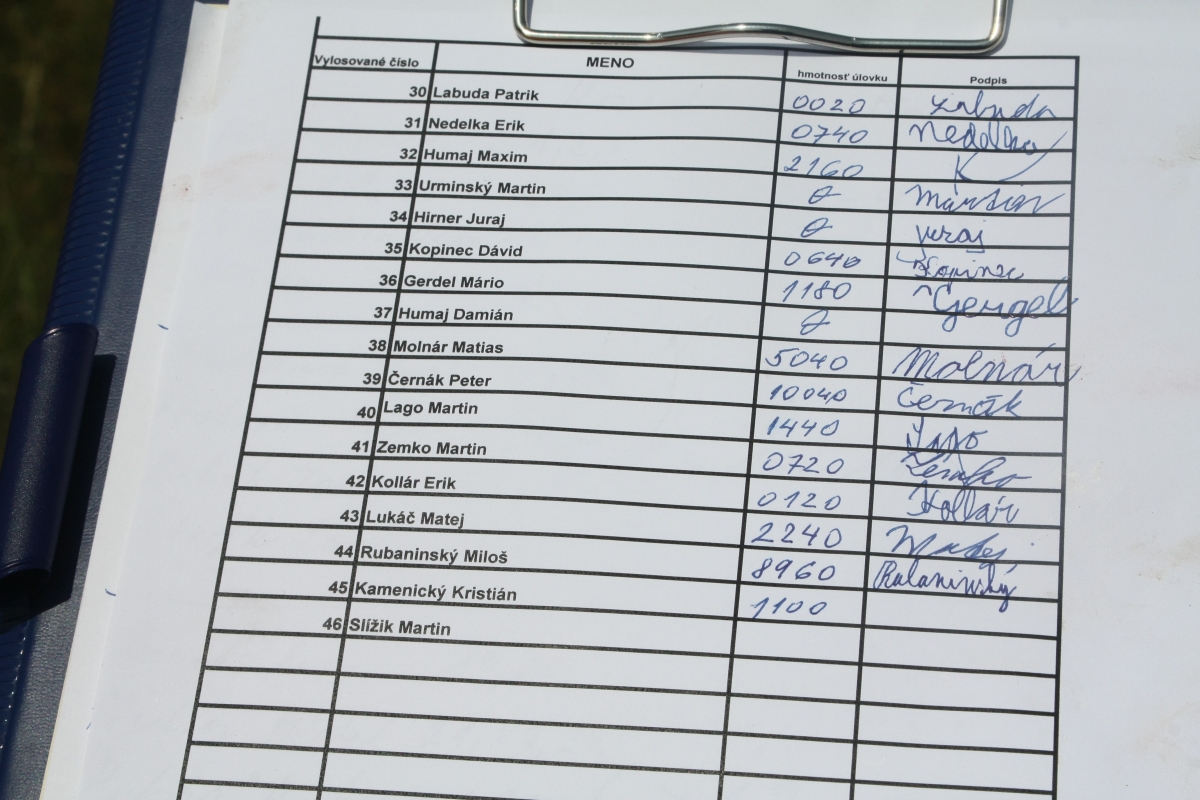 Vylosované číslo MENO hmotnosť úlovku Podpis
30 Labuda Patrik 0020 Labuda
31 Nedelka Erik 0740 Nedelka
32 Humaj Maxim 2160
33 Urminský Martin 0 Martin
34 Hirner Juraj 0 Juraj
35 Kopinec Dávid 0640 Kopinec
36 Gerdel Mário 1180 Gergel
37 Humaj Damián 0
38 Molnár Matias 5040 Molnár
39 Černák Peter 10040 Černák
40 Lago Martin 1440 Lago
41 Zemko Martin 0720 Zemko
42 Kollár Erik 0120 Kollár
43 Lukáč Matej 2240 Matej
44 Rubaninský Miloš 8960
45 Kamenický Kristián 1100
46 Slížik Martin